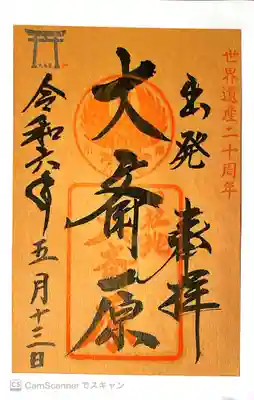 世界遺産二十周年
出発
奉拝
大斎原
令和六年五月十三日
CS CamScanner でスキャン